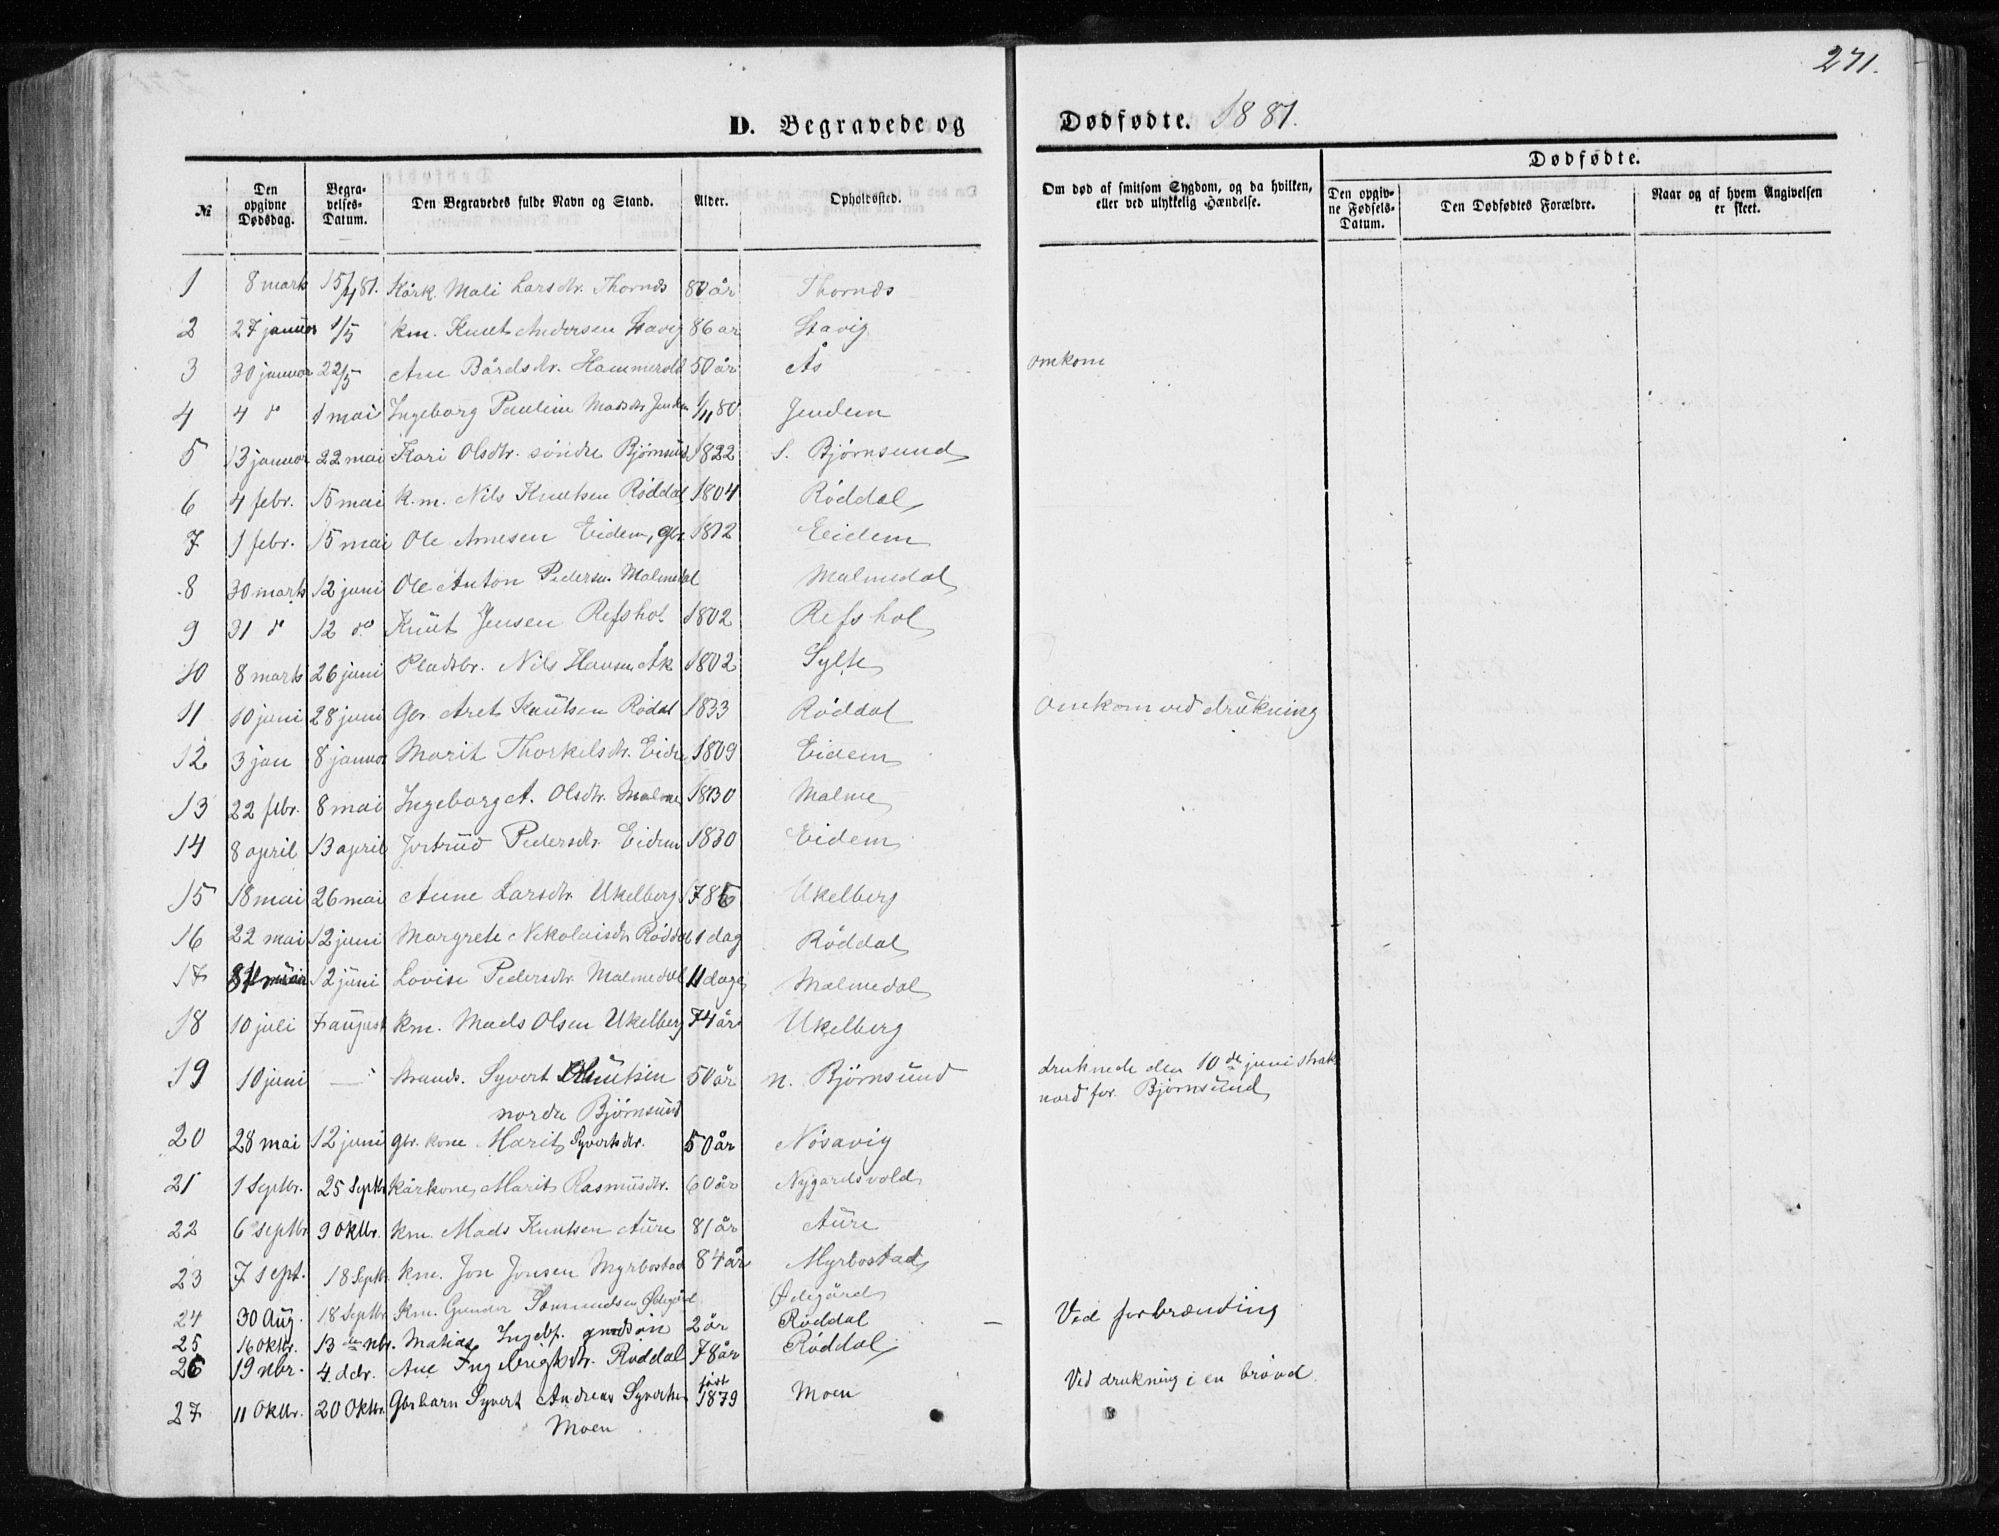 271.
D. Begravede og Dødfødte. 1881.
№ Den opgivne Dødsdag. Begravelses-Datum. Den Begravedes fulde Navn og Stand. Alder. Opholdssted. Om død af smitsom Sygdom, og da hvilken, eller ved ulykkelig Hændelse. Dødfødte. Den opgivne Fødsels-Datum. Den Dødfødtes Forældre. Naar og af hvem Angivelsen er skeet.
1 8 marts 15/4 81. Kårk. Mali Larsdtr. Thornæs 80 år Thornæs
2 27 januar 1/5 km. Knut Andersen Stavig 86 år Stavig
3 30 januar 22/5 Ane Bårdsdtr. Hammervold 50 år Ås omkom
4 4 do 1 mai Ingeborg Pauline Madsdtr Jendem 1/11 80. Jendem
5 13 januar 22 mai Kari Olsdtr. søndre Bjørnsund 1822 S. Bjørnsund
6 4 febr. 15 mai k.m. Nils Knutsen Røddal 1804 Røddal
7 1 febr. 15 mai Ole Arnesen Eidem, gbr 1812 Eidem
8 30 marts 12 juni Ole Anton Pedersen Malmedal Malmedal
9 31 do 12 do Knut Jensen Refshol 1802 Refshol
10 8 marts 26 juni Pladsbr. Nils Hansen Åk 1802 Sylte
11 10 juni 28 juni Gbr. Aret Knutsen Rødal 1833 Røddal Omkom ved drukning
12 3 jan 8 januar Marit Thorkilsdtr. Eidem 1809 Eidem
13 22 febr. 8 mai Ingeborg A. Olsdtr. Malme 1830 Malme
14 8 april 13 april Jertrud Pedersdtr. Eidem 1830 Eidem
15 18 mai 26 mai Anne Larsdtr. Ukelberg 1786 Ukelberg
16 22 mai 12 juni Margrete Nikolaisdtr Røddal 1 dag Røddal
17 31 mai 12 juni Lovise Pedersdtr. Malmedal 11 dage Malmedal
18 10 juli 7 august km. Mads Olsen Ukelberg 74 år Ukelberg
19 10 juni — Strands. Syvert Knutsen 50 år n. Bjørnsund druknede den 10de juni strak
nordre Bjørnsund nord for Bjørnsund
20 28 mai 12 juni gbr. kone Marit Syvertsdtr. 50 år Nøsavig
21 1 Septbr. 25 Septbr kårkone Marit Rasmusdtr. 60 år Nygardsvold
22 6 septbr 9 oktbr. km. Mads Knutsen Aure 81 år Aure
23 7 sept. 18 Septbr km. Jon Jonsen Myrbostad 84 år Myrbostad
24 30 Aug. 18 Septbr Km. Gunder Sæmundsen Ødegård Ødegård
25 16 oktbr. 13 nbr. Matias 2 år Røddal Ved forbrænding
26 19 nbr. 4 dcbr. Ane Ingebrigtsdtr. Røddal 78 år Røddal
27 11 Oktbr. 20 Oktbr. Gbrbarn Syvert Andreas Syvertsen født 1879 Moen Ved drukning i en brønd.
Moen